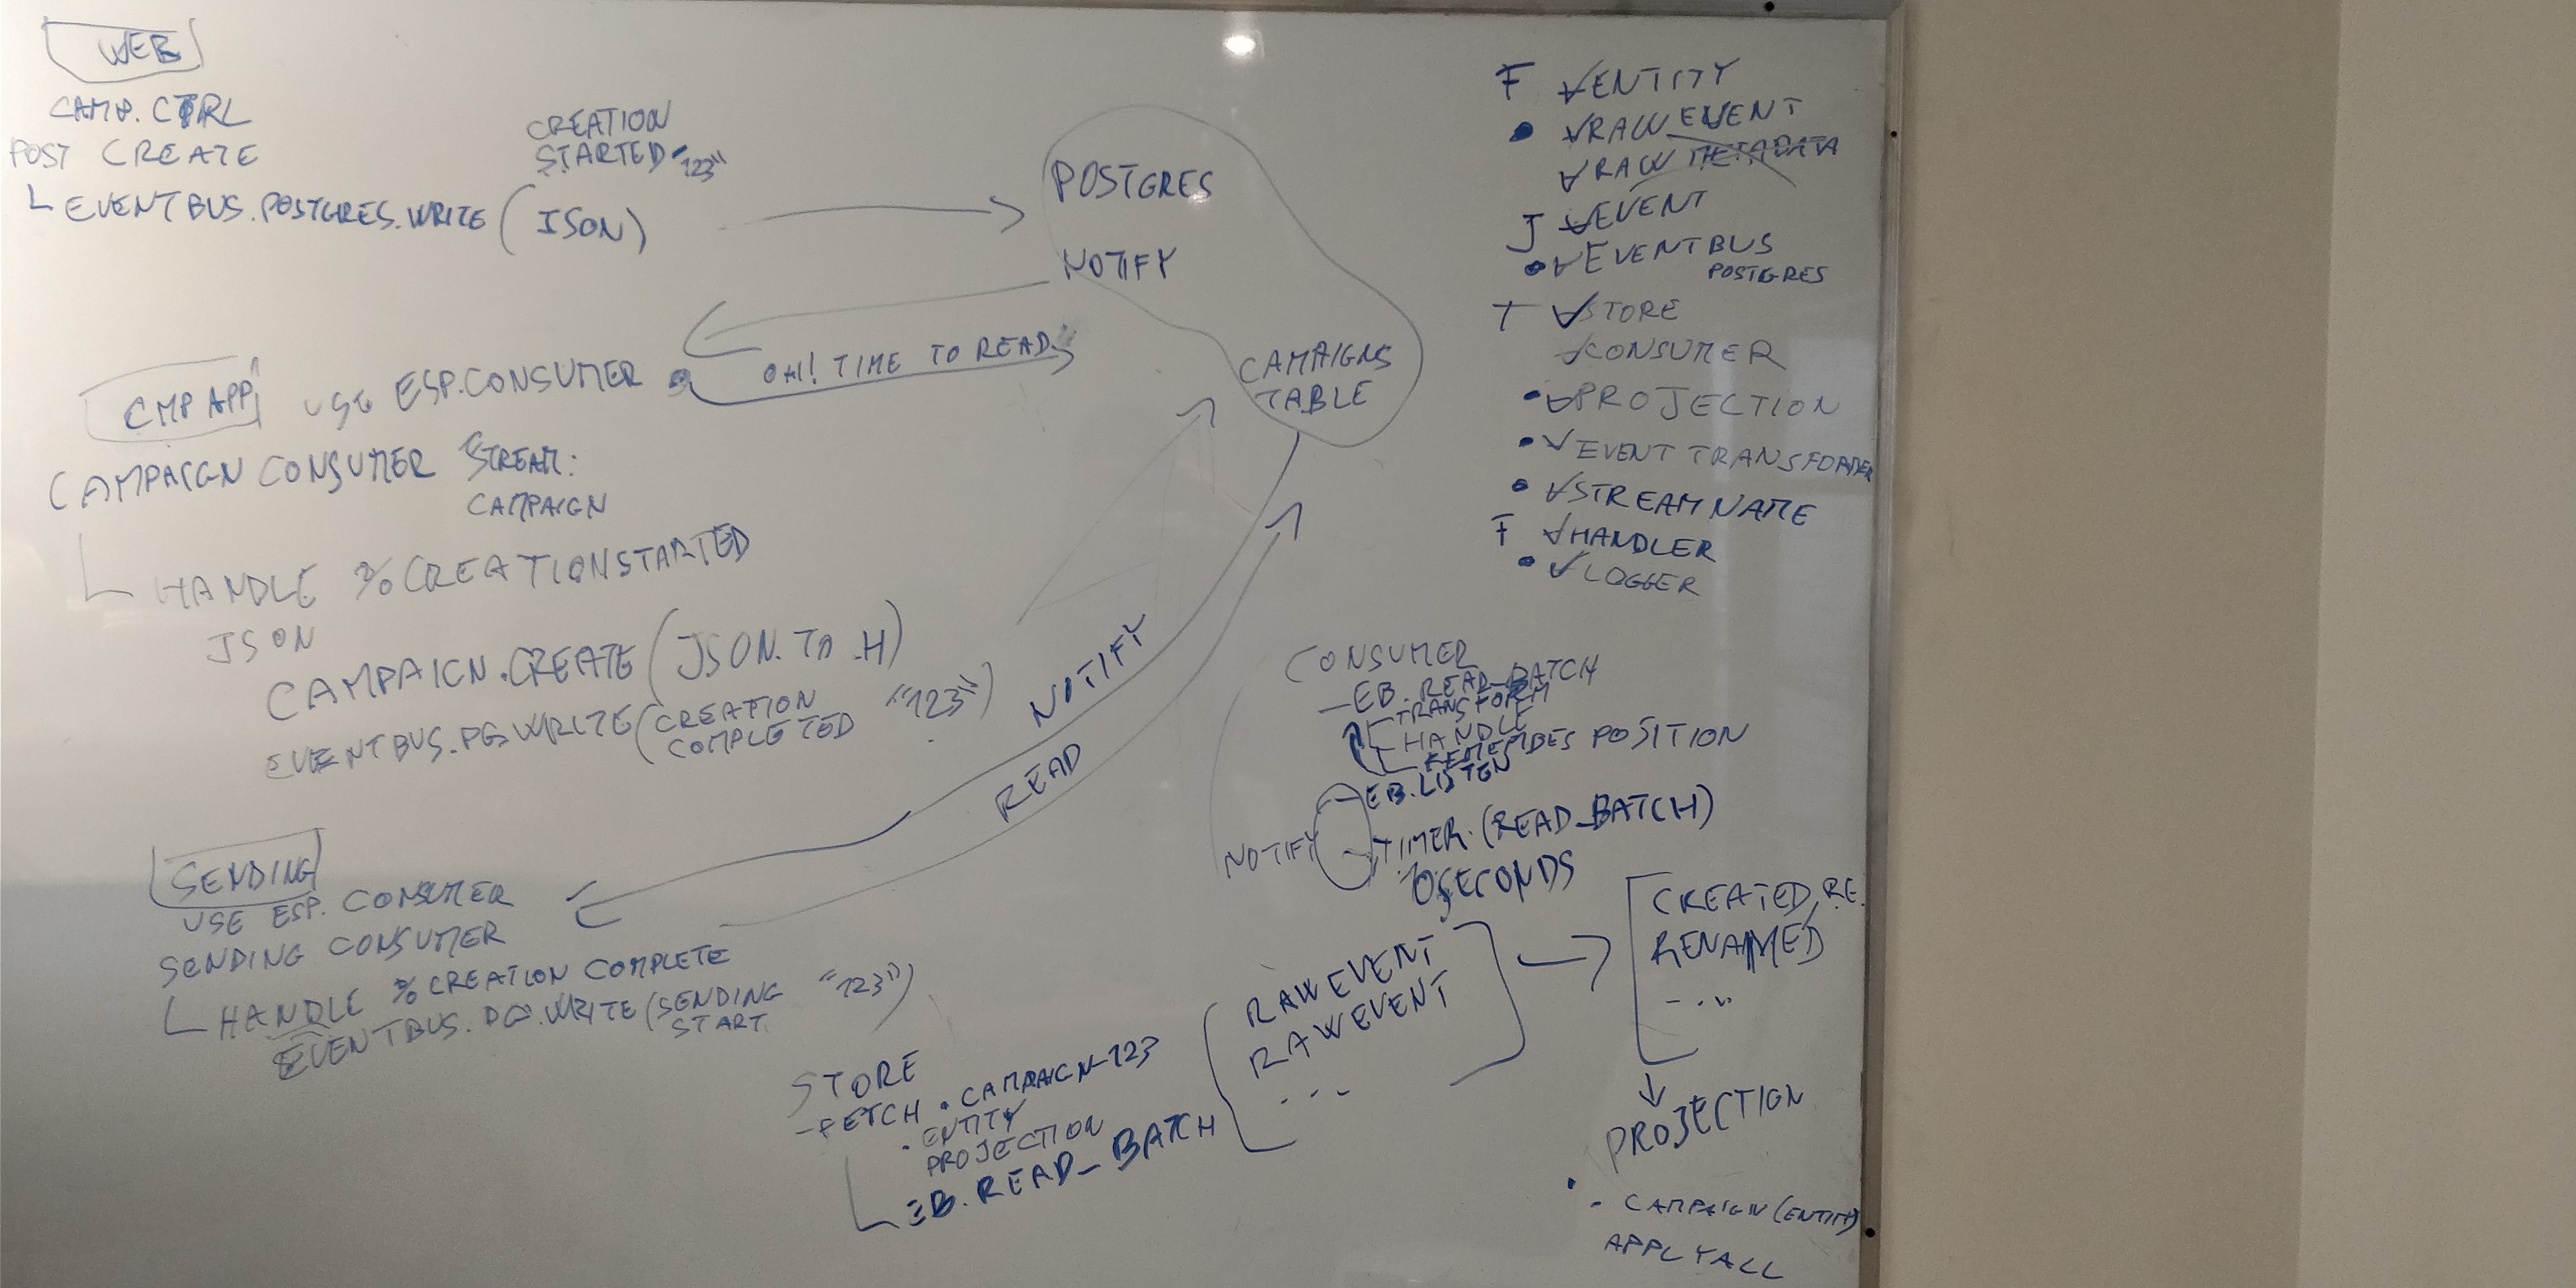 WEB
CAMP. CTRL
POST CREATE
EVENTBUS.POSTGRES.WRITE (JSON)
CREATION
STARTED "123"
POSTGRES
NOTIFY
CAMPAIGNS
TABLE
OH! TIME TO READ
CMP APP
USE ESP.CONSUMER
CAMPAIGN CONSUMER STREAM:
CAMPAIGN
HANDLE %CREATIONSTARTED
JSON
CAMPAIGN.CREATE (JSON.TO_H)
EVENTBUS.PG.WRITE (CREATION
COMPLETED "123")
NOTIFY
READ
SENDING
USE ESP. CONSUMER
SENDING CONSUMER
HANDLE %CREATION COMPLETE
EVENTBUS.PG.WRITE (SENDING
START "123")
F ENTITY
RAW EVENT
RAW METADATA
J EVENT
EVENTBUS
POSTGRES
T STORE
CONSUMER
PROJECTION
EVENT TRANSFORMER
STREAM NAME
F HANDLER
LOGGER
CONSUMER
- EB.READ_BATCH
TRANSFORM
HANDLE
POSITION
- EB.LISTEN
NOTIFY
- TIMER.(READ_BATCH)
10SECONDS
STORE
- FETCH • CAMPAIGN-123
• ENTITY
PROJECTION
EB.READ_BATCH
RAWEVENT
RAWEVENT
...
CREATED, RE.
RENAMED
- ...
PROJECTION
- CAMPAIGN (ENTITY)
APPLYALL